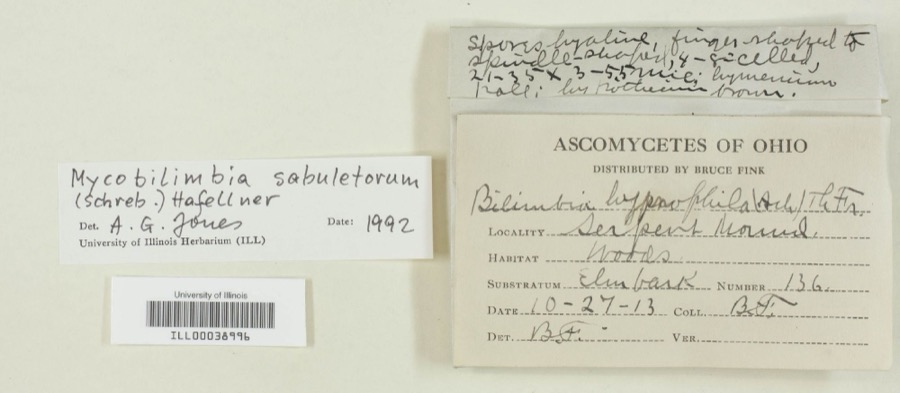 Spores hyaline, finger-shaped to
spindle-shaped, 4-6 celled,
21-35 X 3-5.5 mic; hymenium
pale; hypothecium brown.
ASCOMYCETES OF OHIO
DISTRIBUTED BY BRUCE FINK
Bilimbia hypnophila (Ach.) Th. Fr.
LOCALITY Serpent Mound.
HABITAT Woods
SUBSTRATUM Elm bark NUMBER 136.
DATE 10-27-13 COLL. B.F.
DET. B.F. VER.
Mycobilimbia sabuletorum
(Schreb.) Hafellner
Det. A. G. Jones Date: 1992
University of Illinois Herbarium (ILL)
University of Illinois
ILL00038996